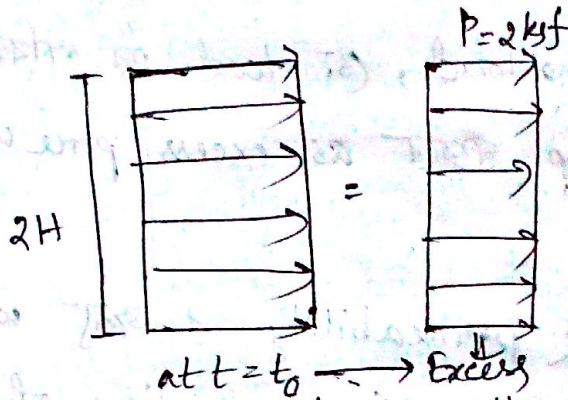 P=2ksf
2H
=
at t = t₀ → Excess